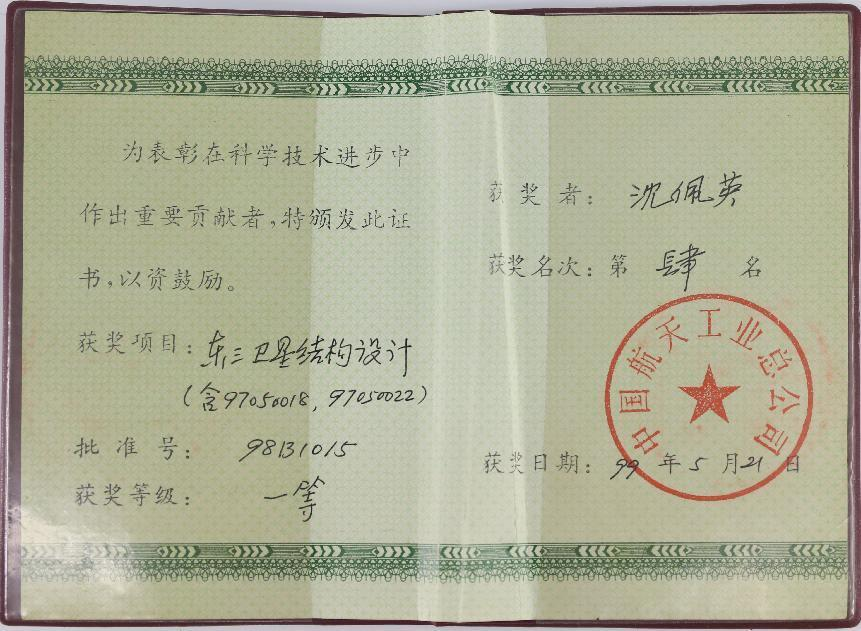 为表彰在科学技术进步中
作出重要贡献者，特颁发此证
书，以资鼓励。
获奖项目：东三卫星结构设计
（含97050018，97050022）
批准号：98131015
获奖等级：一等
获奖者：沈佩英
获奖名次：第肆名
中国航天工业总公司
获奖日期：99年5月21日